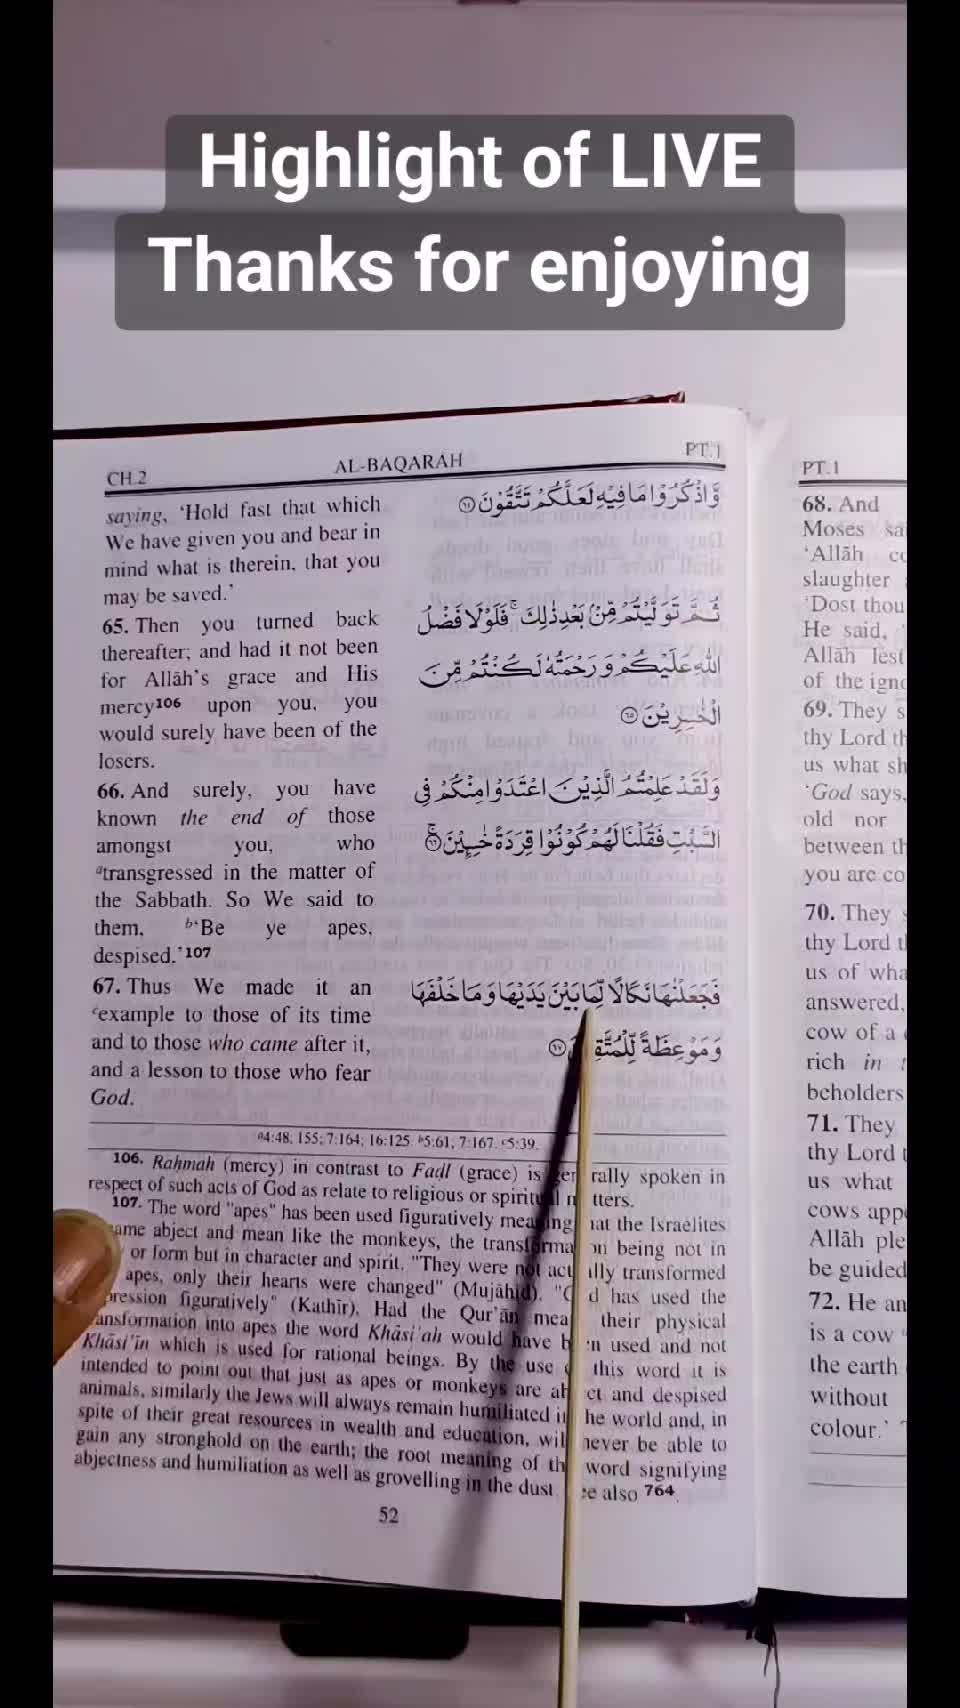 Highlight of LIVE
Thanks for enjoying
CH.2
AL-BAQARAH
PT.1
saying, ‘Hold fast that which
We have given you and bear in
mind what is therein, that you
may be saved.’
65. Then you turned back
thereafter; and had it not been
for Allāh’s grace and His
mercy106 upon you, you
would surely have been of the
losers.
66. And surely, you have
known the end of those
amongst you, who
ᵃtransgressed in the matter of
the Sabbath. So We said to
them, ᵇ‘Be ye apes,
despised.’107
67. Thus We made it an
ᶜexample to those of its time
and to those who came after it,
and a lesson to those who fear
God.
وَّاذْكُرُوْا مَا فِيْهِ لَعَلَّكُمْ تَتَّقُوْنَ
ثُمَّ تَوَلَّيْتُمْ مِّنْۢ بَعْدِ ذٰلِكَ ۚ فَلَوْلَا فَضْلُ
اللّٰهِ عَلَيْكُمْ وَرَحْمَتُهٗ لَكُنْتُمْ مِّنَ
الْخٰسِرِيْنَ ۝۶۵
وَلَقَدْ عَلِمْتُمُ الَّذِيْنَ اعْتَدَوْا مِنْكُمْ فِى
السَّبْتِ فَقُلْنَا لَهُمْ كُوْنُوْا قِرَدَةً خٰسِـِٕيْنَ ۝۶۶
فَجَعَلْنٰهَا نَكَالًا لِّمَا بَيْنَ يَدَيْهَا وَمَا خَلْفَهَا
وَمَوْعِظَةً لِّلْمُتَّقِيْنَ ۝۶۷
ᵃ4:48; 155; 7:164; 16:125. ᵇ5:61, 7:167. ᶜ5:39.
106. Raḥmah (mercy) in contrast to Faḍl (grace) is generally spoken in
respect of such acts of God as relate to religious or spiritual matters.
107. The word "apes" has been used figuratively meaning that the Israelites
abject and mean like the monkeys, the transformation being not in
or form but in character and spirit. "They were not actually transformed
apes, only their hearts were changed" (Mujāhid). "God has used the
expression figuratively" (Kathīr). Had the Qur’ān meant their physical
transformation into apes the word Khāsi’ah would have been used and not
Khāsi’īn which is used for rational beings. By the use of this word it is
intended to point out that just as apes or monkeys are abject and despised
animals, similarly the Jews will always remain humiliated in the world and, in
spite of their great resources in wealth and education, will never be able to
gain any stronghold on the earth; the root meaning of the word signifying
abjectness and humiliation as well as grovelling in the dust. See also 764.
52
PT.1
68. And
Moses
‘Allāh
slaughter
‘Dost thou
He said,
Allāh lest
of the
69. They
thy Lord
us what
‘God says,
old nor
between
you are
70. They
thy Lord
us of
answered,
cow of a
rich in
beholders
71. They
thy Lord
us what
cows
Allāh
be guided
72. He
is a cow
the earth
without
colour.’